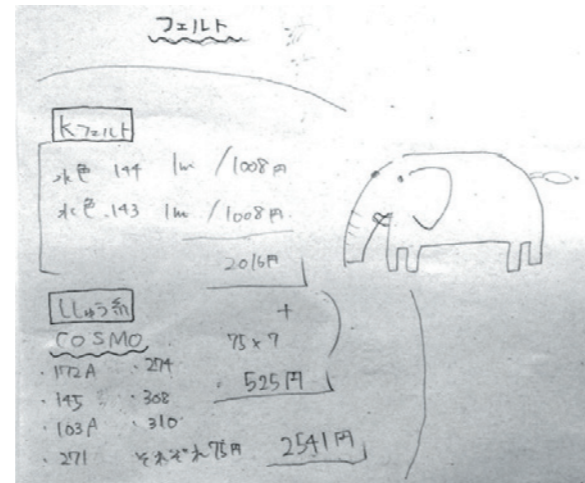 フェルト
Kフェルト
水色 144 1m /1008円
水色.143 1m /1008円.
2016円
ししゅう糸
+
COSMO
75×7
・172A ・274
・525円
・145 ・308
・103A ・310
・271 それぞれ75円 2541円